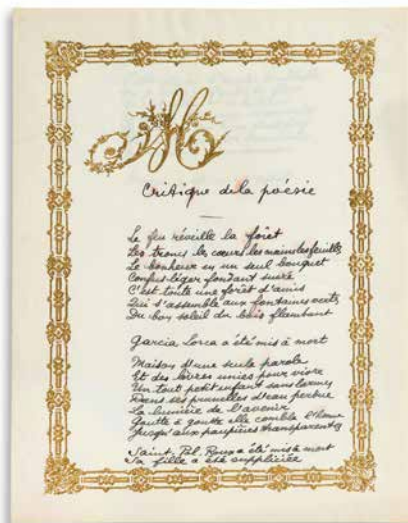 Critique de la poésie
Le feu réveille la forêt
Les troncs les cœurs les mains les feuilles
Le bonheur en un seul bouquet
Confus léger fondant sucré
C'est toute une forêt d'amis
Qui s'assemble aux fontaines vertes
Du bon soleil du bois flambant
Garcia Lorca a été mis à mort
Maison d'une seule parole
Et des lèvres unies pour vivre
Un tout petit enfant sans larmes
Dans ses prunelles d'eau perdue
La lumière de l'avenir
Goutte à goutte elle comble l'homme
Jusqu'aux paupières transparentes
Saint-Pol-Roux a été mis à mort
Sa fille a été suppliciée